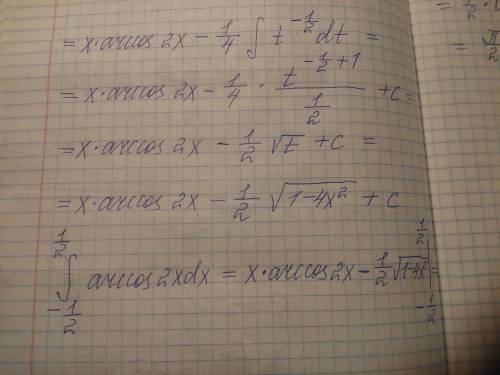 = x·arccos 2x − 1/4 ∫ t^(−1/2) dt =
= x·arccos 2x − 1/4 · t^(−1/2+1) / (1/2) + c =
= x·arccos 2x − 1/2 √t + c =
= x·arccos 2x − 1/2 √(1−4x²) + c
∫_(−1/2)^(1/2) arccos 2x dx = x·arccos 2x − 1/2 √(1−4x²) |_(−1/2)^(1/2) =
= π/2